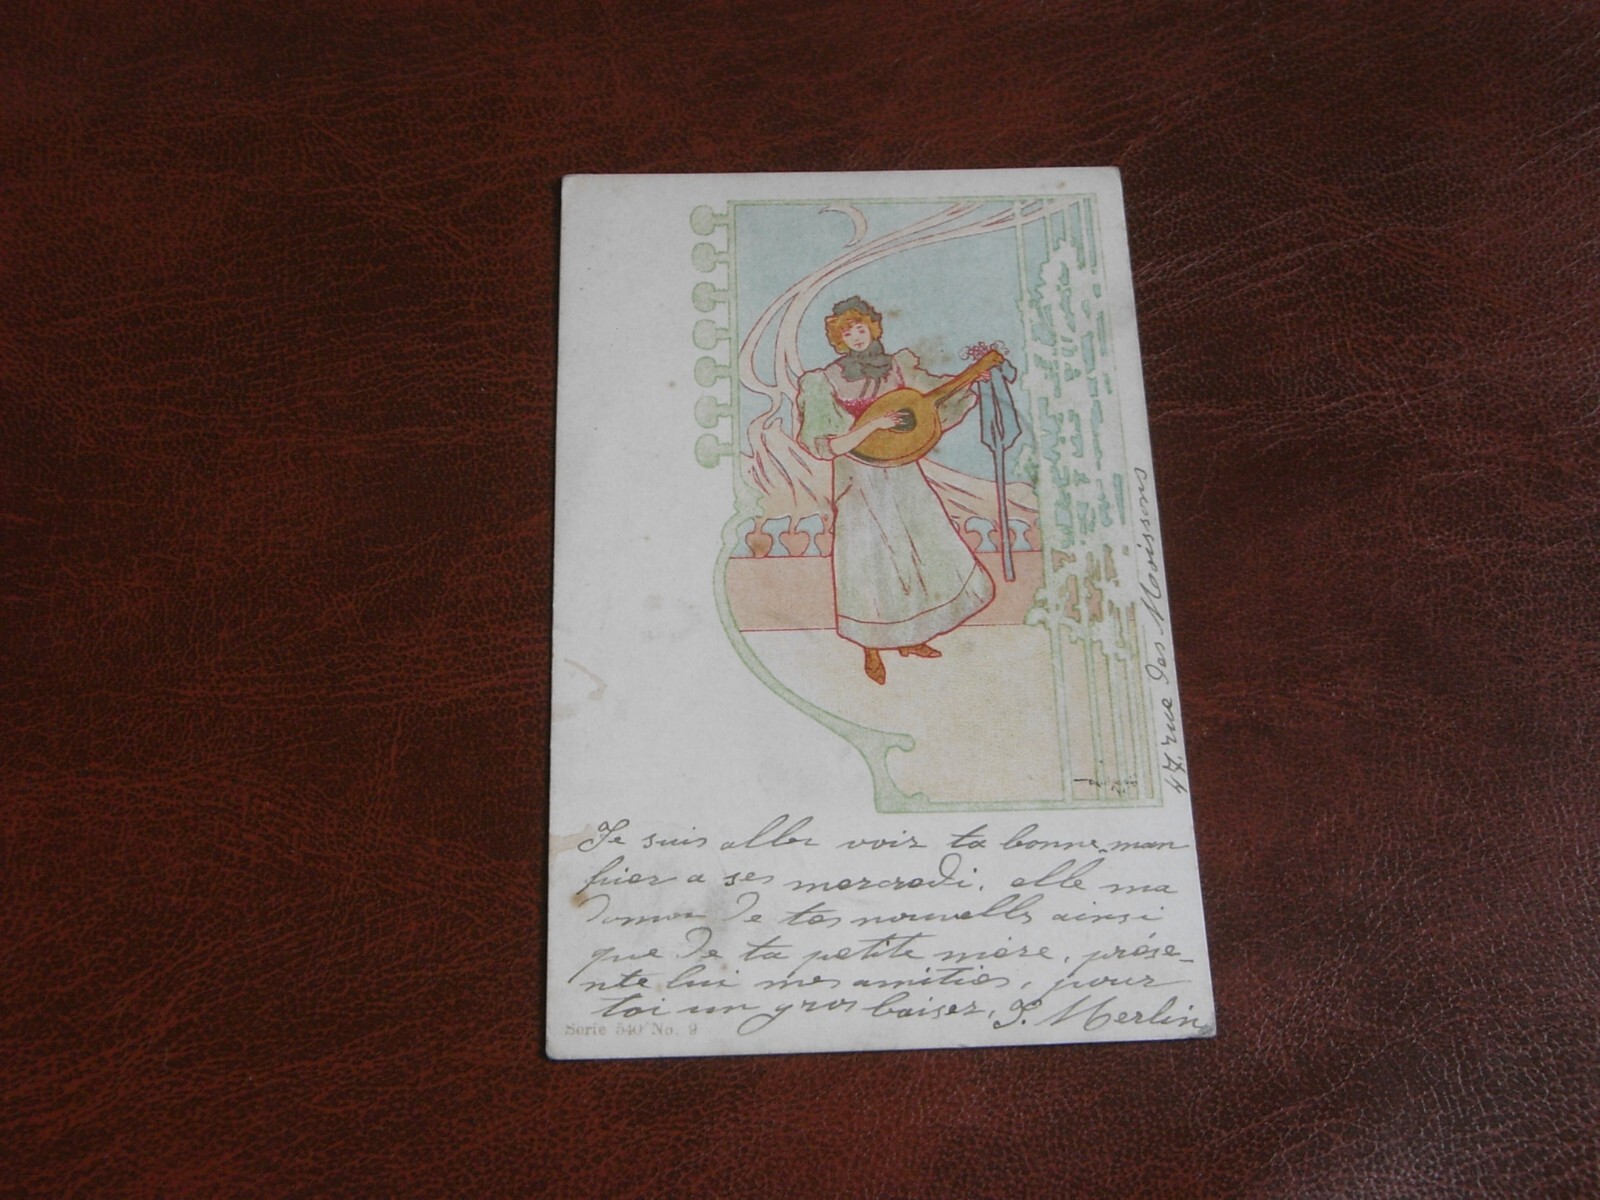 Je suis aller voir ta bonne-man
hier a ses mercredi. elle ma
donner de tes nouvells ainsi
que de ta petite mère, prése-
nte lui mes amitiés, pour
toi un gros baiser, J. Merlin
Serie 540 No. 9
47 rue des Moissons